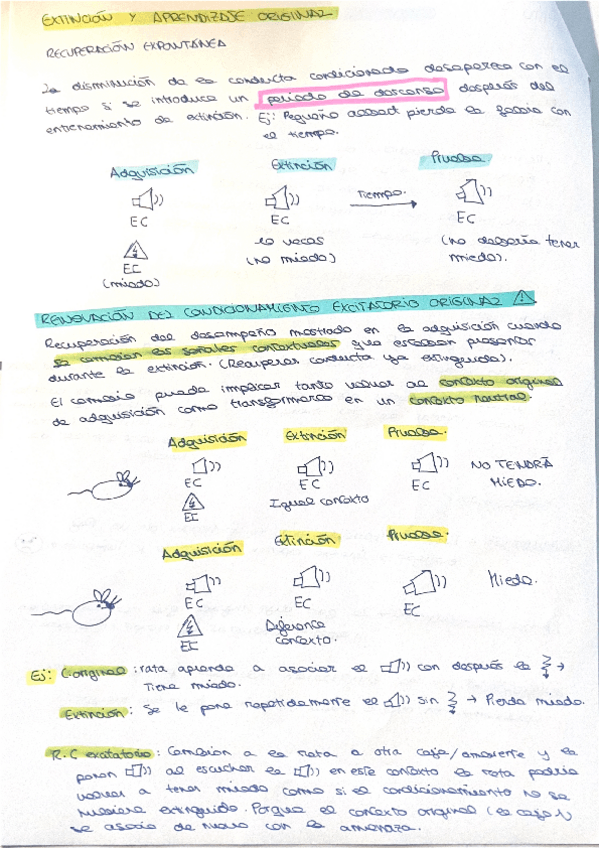 EXTINCIÓN Y APRENDIZAJE ORIGINAL
RECUPERACIÓN EXPONTÁNEA
La disminución de la conducta condicionada desaparece con el
tiempo si se introduce un periodo de descanso después del
entrenamiento de extinción. Ej: Pequeño albert pierde la fobia con
el tiempo.
Adquisición Extinción Prueba
Tiempo.
EC EC EC
EC 20 veces (no debería tener
(miedo) (no miedo) miedo).
RENOVACIÓN DEL CONDICIONAMIENTO EXCITATORIO ORIGINAL
Recuperación del desempeño mostrado en la adquisición cuando
se cambian las señales contextuales que estaban presentes
durante la extinción. (Recuperar conducta ya extinguida).
El cambio puede implicar tanto volver al contexto original
de adquisición como transformarlo en un contexto neutral.
Adquisición Extinción Prueba.
EC EC EC NO TENDRÁ MIEDO.
EI Igual contexto
Adquisición Extinción Prueba.
EC EC EC Miedo.
EI Diferente
contexto.
Ej: C.original: rata aprende a asociar el con después la →
Tiene miedo.
Extinción: Se le pone repetidamente el sin → Pierde miedo.
R.C excitatorio: Cambian a la rata a otra caja/ambiente y le
ponen al escuchar el en este contexto la rata podría
volver a tener miedo como si el condicionamiento no se
hubiese extinguido. Porque el contexto original (la caja)
se asocia de nuevo con la amenaza.